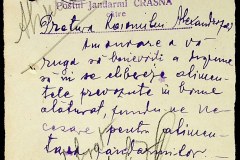 Postul Jandarmi CRASNA
către
Pretura Raionului Alexandreni
Am onoare a vă
ruga să binevoiți a dispune
să mi se elibereze alimen-
tele prevăzute în bonul
alăturat, fiindu-ne ne-
cesare pentru alimen-
tarea jandarmilor